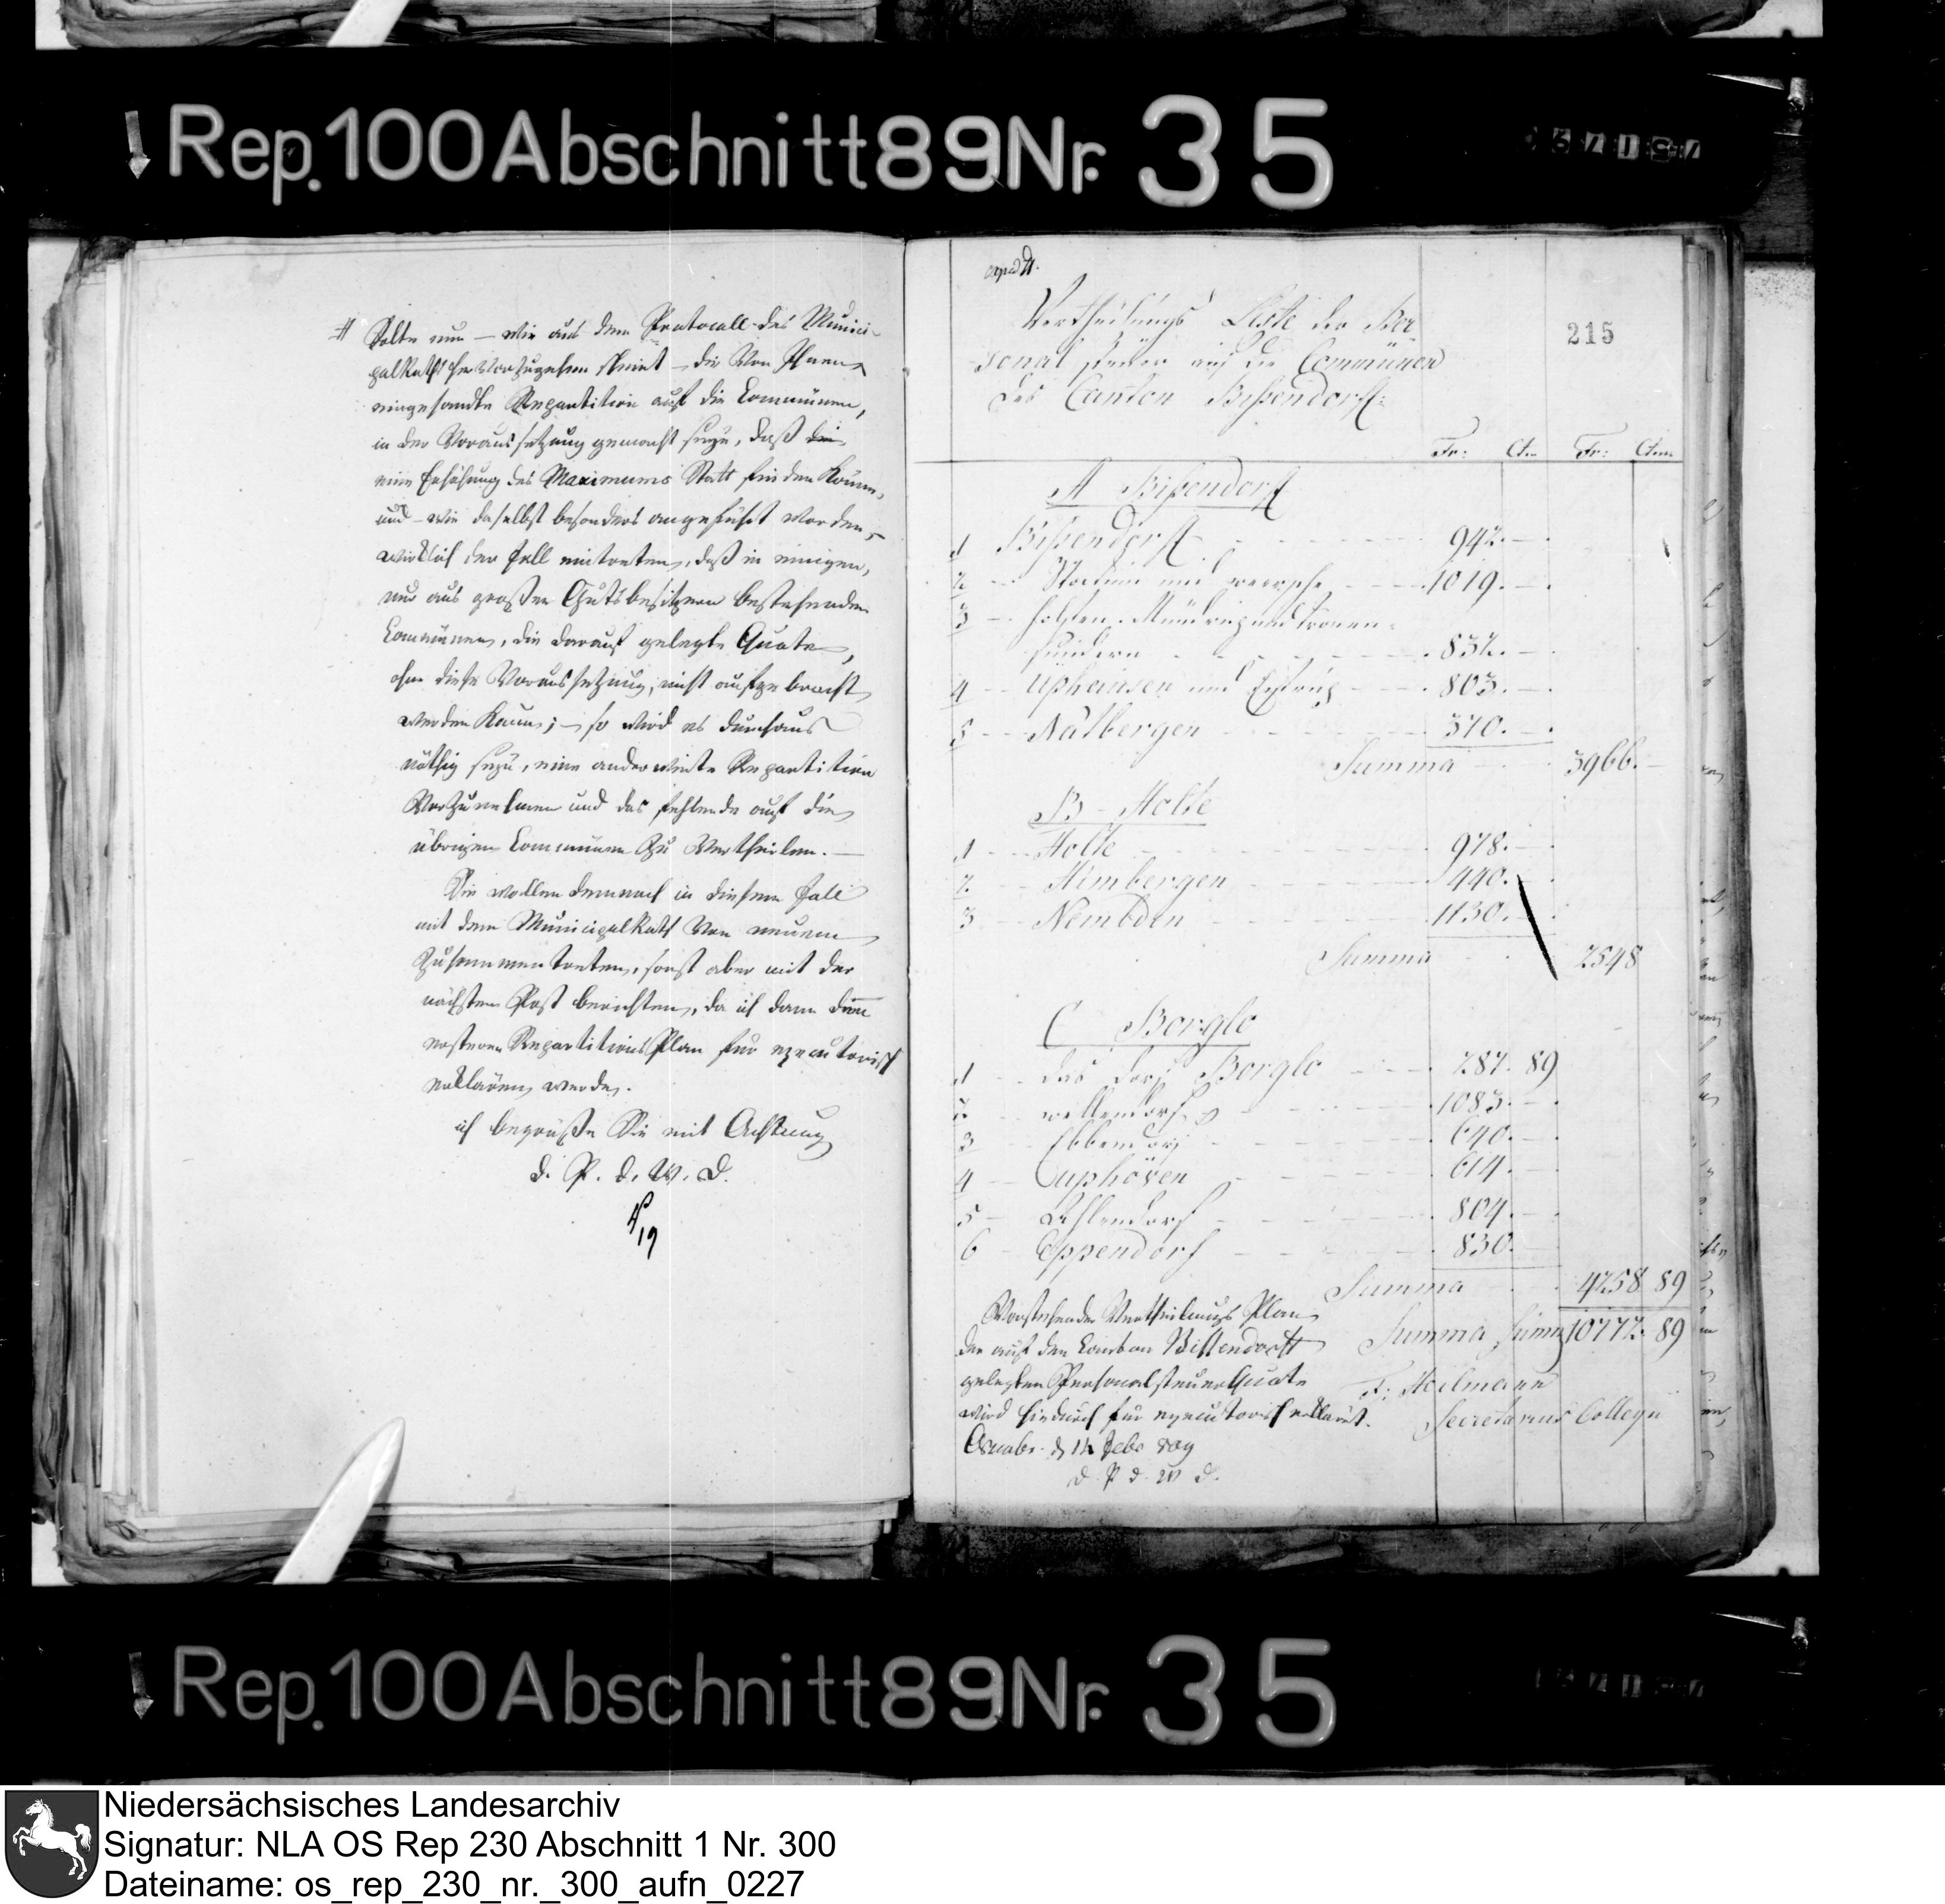 Rep. 100 Abschnitt 89 Nr. 35
# Sollte nun – wie aus dem Protocoll des Munici-
palRaths hervorzugehen scheint – die Von Ihnen
eingesandte Repartition auf die Communen,
in der Voraussetzung gemacht seyn, daß
eine Erhöhung des Maximums Statt finden könne,
und – wie daselbst besonders angeführt worden, –
wirklich der Fall eintreten, daß in einigen,
nur aus großen Gutsbesitzern bestehenden
Communen, die darauf gelegte Quote,
ohne diese Voraussetzung, nicht aufgebracht
werden kann; – so wird es durchaus
nöthig seyn, eine anderweite Repartition
Vorzunehmen und das fehlende auf die
übrigen Communen zu Vertheilen. –
Sie wollen demnach in diesem Fall
mit dem MunicipalRath Von neuem
Zusammentreten, sonst aber mit der
nächsten Post berichten, da ich dann
ersteren RepartitionsPlan für executorisch
erklären werde.
ich begrüße Sie mit Achtung
d. P. d. W. D.
215
Vertheilungs Liste der Per
sonal steuer auf die Communen
des Canton Bißendorf:
Fr: Ctm Fr: Ctm
A Bißendorf
1 Bißendorf 942. –
2 Stockum und 1019. –
3 Holsten. Mündrup und
832. –
4 Uphausen und Eistrup 803. –
5 Natbergen 370. –
Summa 3966. –
B – Holte
1 Holte 978. –
2 Himbergen 440. –
3 Nembden 1130. –
Summa 2548
C Borglo
1 das dorf Borglo 287. 89
2 wellendorf 1083. –
3 Ebbendorf 640. –
4 uphöven 614. –
5 804. –
6 Eppendorf 830. –
Summa 4258 89
Summa Summ 10772. 89
Vorstehender Vertheilungs Plan
der auf den Canton Bissendorff
gelegten Personalsteuer Quote
wird hiedurch für executorisch erklärt.
Osnabr. d 14 Febr 809
d. P. d. W. D.
F: Heilmann
Secretarius Collegii
Rep. 100 Abschnitt 89 Nr. 35
Niedersächsisches Landesarchiv
Signatur: NLA OS Rep 230 Abschnitt 1 Nr. 300
Dateiname: os_rep_230_nr._300_aufn_0227